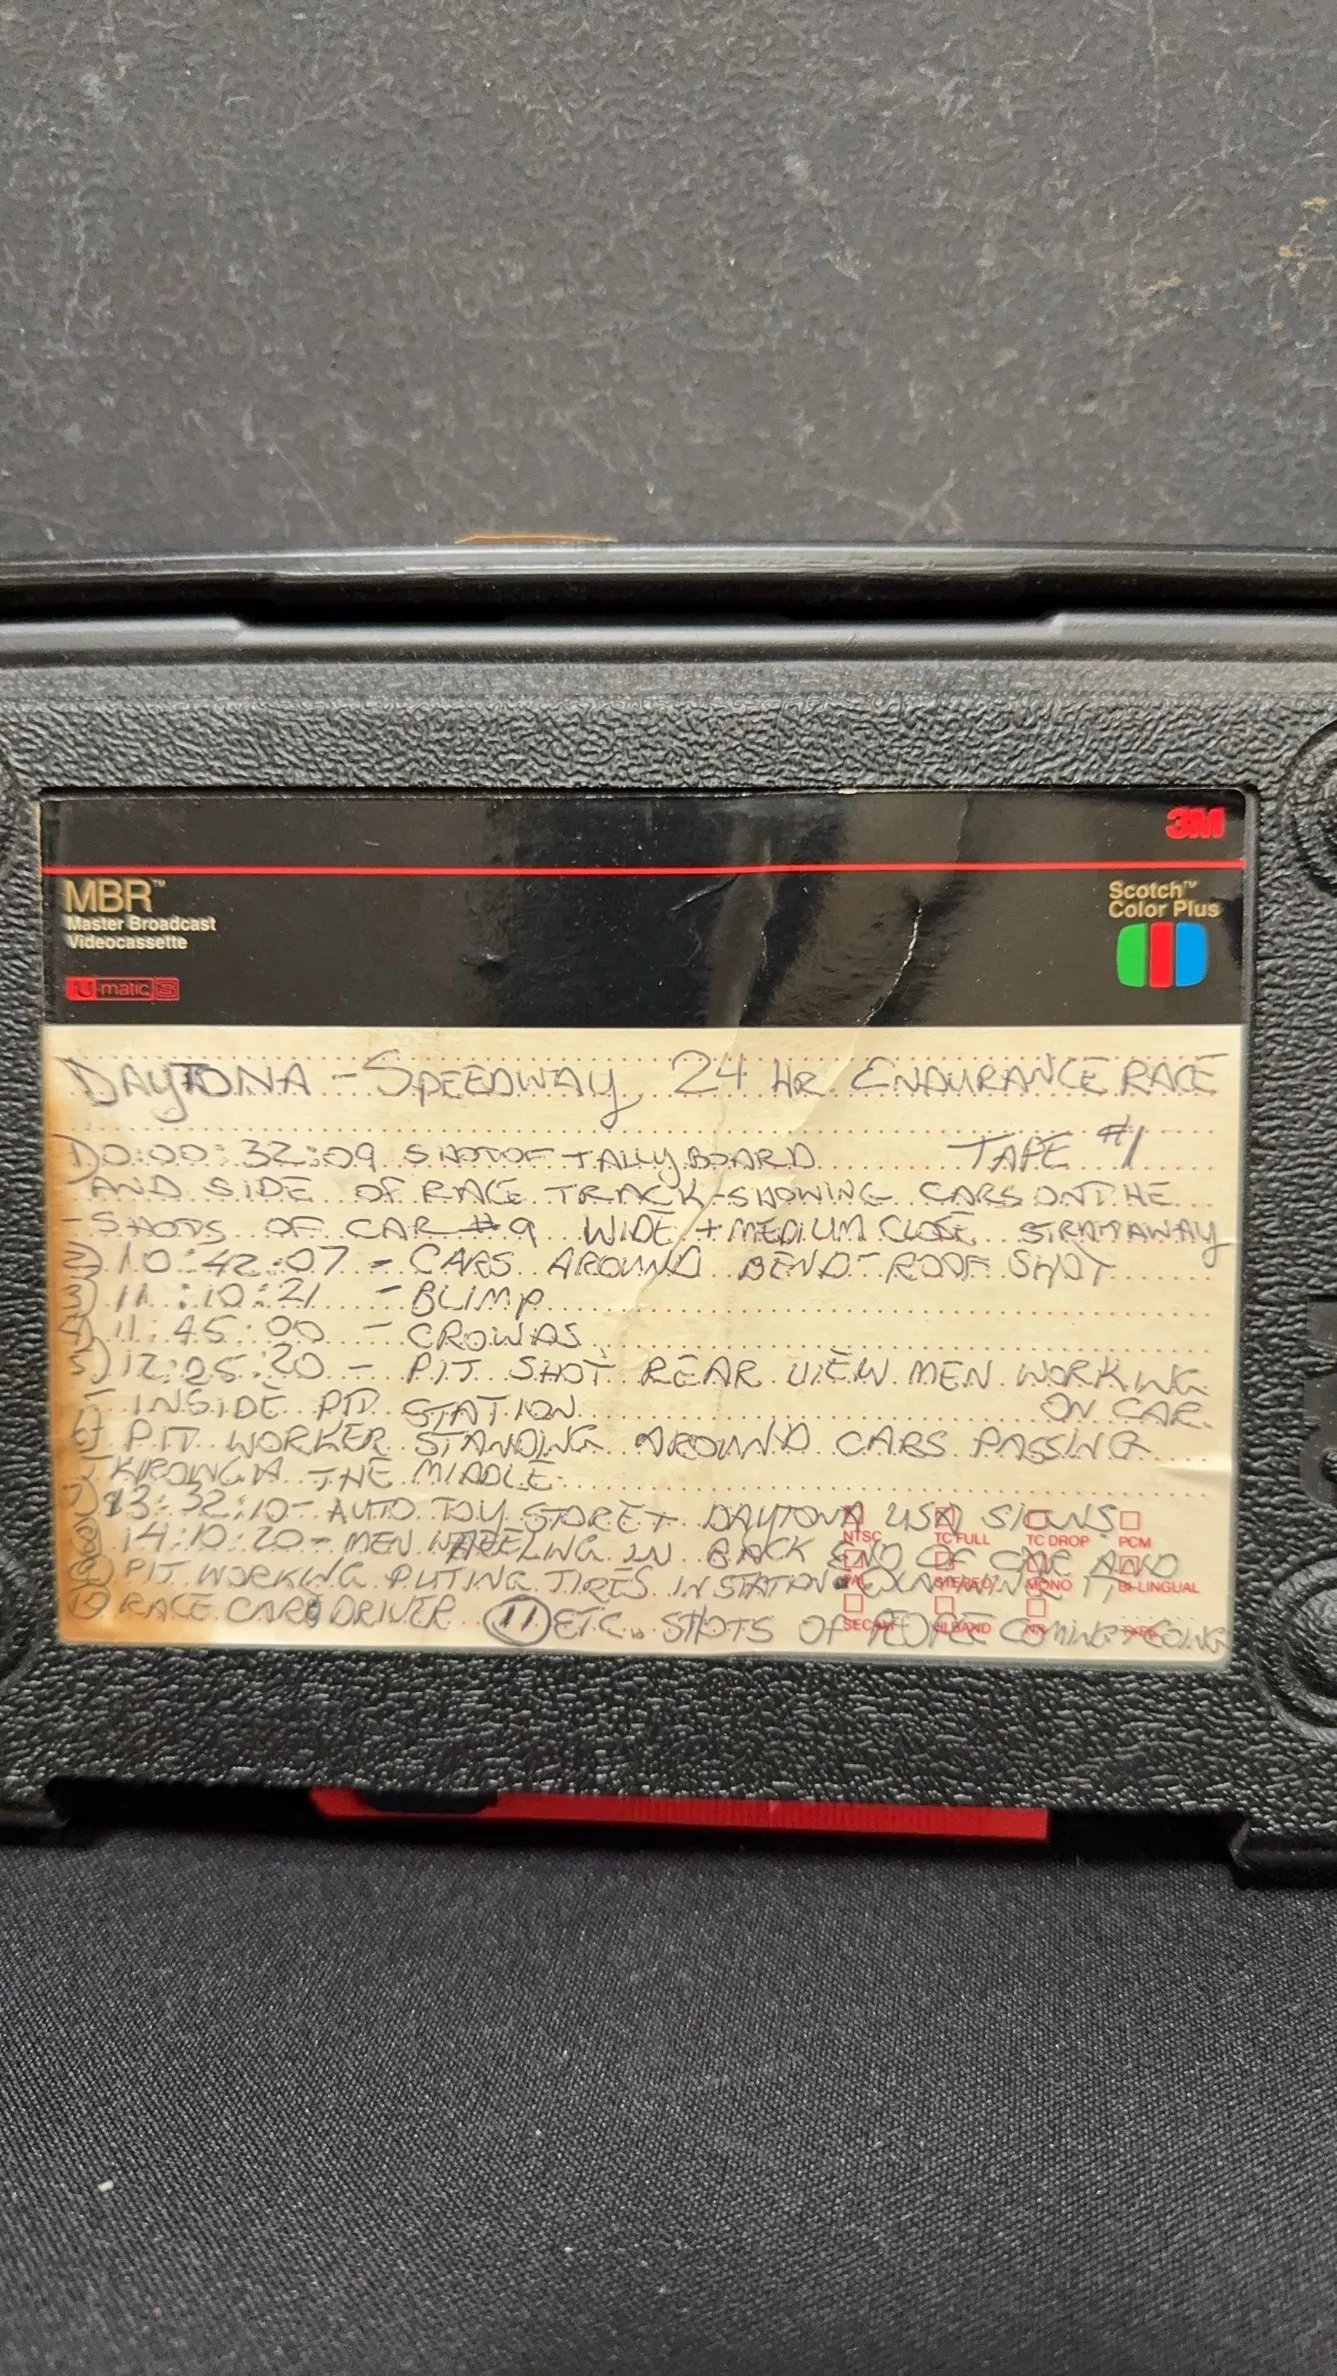 3M
MBR™
Master Broadcast
Videocassette
U-matic S
Scotch™
Color Plus
DAYTONA - SPEEDWAY, 24 HR. ENDURANCE RACE
1) 0:00:32:09 SHOT OF TALLYBOARD TAPE #1
AND SIDE OF RACE TRACK - SHOWING CARS ON THE
- SHOTS OF CAR #9 WIDE + MEDIUM CLOSE STRATAWAY
2) 10:42:07 - CARS AROUND BEND - ROOF SHOT
3) 11:10:21 - BLIMP
4) 11:45:00 - CROWDS
5) 12:25:20 - PIT SHOT REAR VIEW MEN WORKING
INSIDE PIT STATION ON CAR.
6) PIT WORKER STANDING AROUND CARS PASSING
THE MIDDLE.
13:32:10 - AUTO TOY STORE + DAYTONA USA SIGNS
14:10:20 - MEN WHEELING IN BACK END OF CAR AND
PIT WORKING PUTING TIRES IN STATION
10) RACE CAR DRIVER 11 ETC. SHOTS OF PEOPLE COMING + GOING
NTSC TC FULL TC DROP PCM
PAL STEREO MONO BI-LINGUAL
SECAM HI BAND NR TYPE